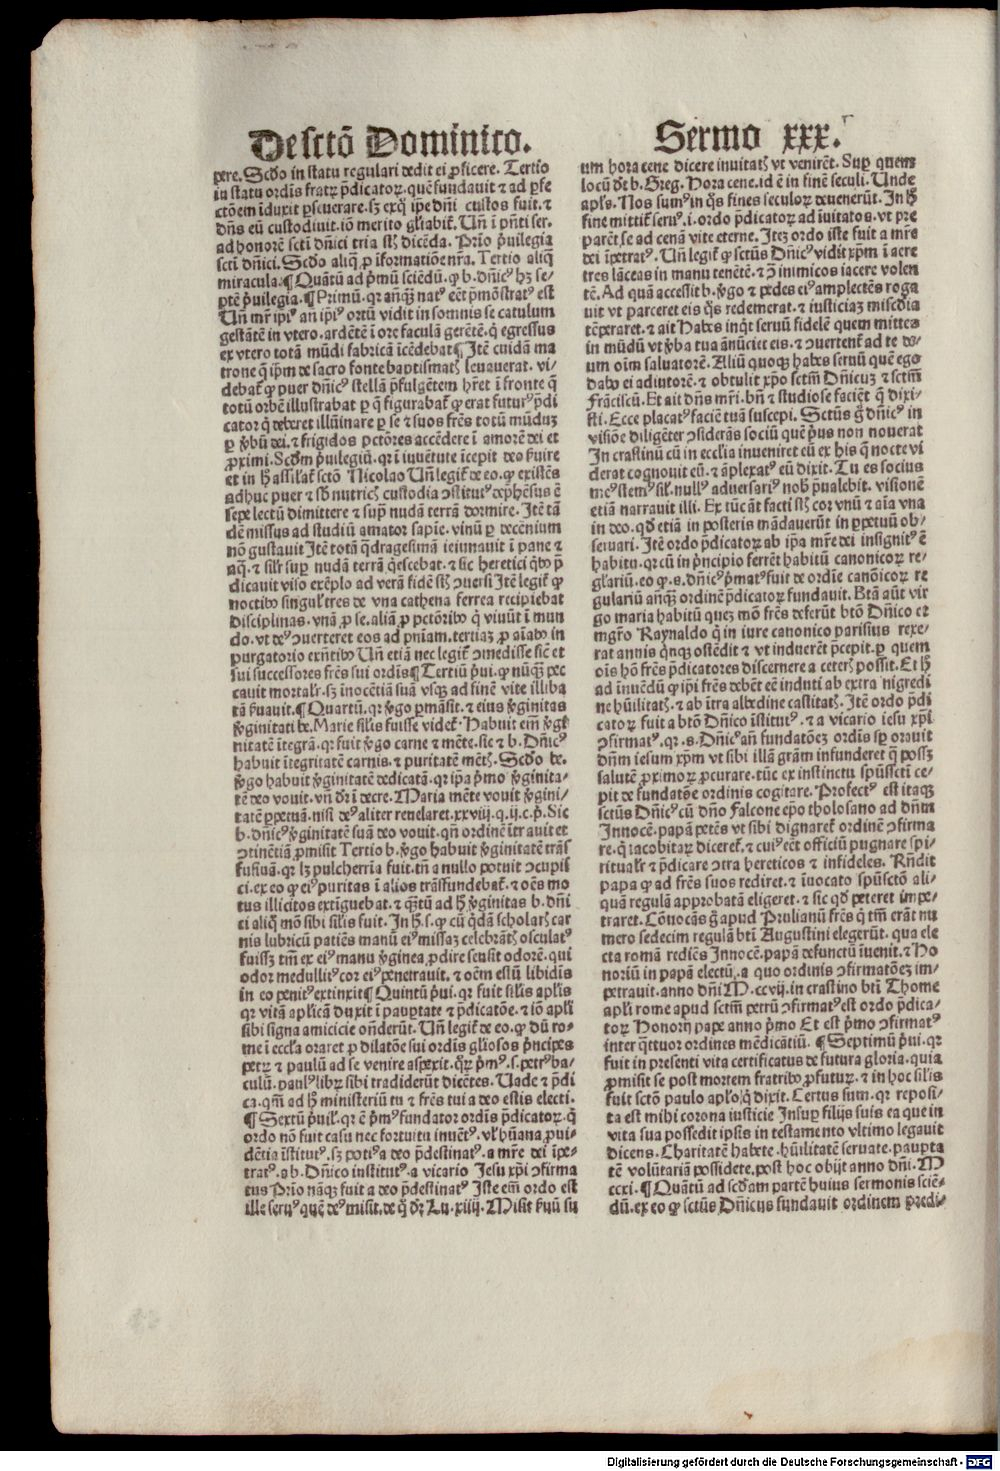 De sctõ Dominico.
Sermo xxx.
pere. Scd̄o in statu regulari dedit ei ꝓficere. Tertio
in statu ordīs fratꝝ p̄dicatoꝝ. quē fundauit ⁊ ad ꝑfe
ctōem īduxit ꝑseuerare. sꝫ exq̄ ip̄e dn̄i custos fuit. ⁊
dn̄s eū custodiuit. iō merito gl̄iabit᷑. Vn̄ ī pn̄ti ser-
ad honorē sctī dn̄ici tria st̄ dicēda. Prīo p̄uilegia
sctī dn̄ici. Scd̄o aliq̄ ꝓ īformatiōe nr̄a. Tertio aliq̄
miracula. ¶ Quātū ad pͥmū sciēdū. ꝙ b. dn̄icꝰ hꝫ se-
ptē p̄uilegia. ¶ Primū. qꝛ anq̄ꝫ natꝰ eēt p̄mōstratꝰ est
Vn̄ mr̄ ipiꝰ an̄ ipiꝰ ortū vidit in somnis se catulum
gestātē in vtero. ardētē ī ore faculā gerētē. q̄ egressus
ex vtero totā mūdi fabricā īcēdebat ¶ Itē cuidā ma
trone que ip̄m de sacro fonte baptismatꝭ leuauerat. vi-
debat᷑ ꝙ puer dn̄icꝰ stellā p̄fulgētem hr̄et ī fronte q̄
totū orbē illustrabat ꝑ q̄ figurabat᷑ ꝙ erat futurꝰ p̄di
cator q̄ deberet illūinare ꝑ se ⁊ suos fr̄es totū mūduꝫ
ꝑ v̄bū dei. ⁊ frigidos pctōres accēdere ī amorē dei et
ꝓximi. Scd̄m p̄uilegiū. qꝛ ī iuuētute īcepit deo ẜuire
et in h̄ assilat᷑ sctō Nicolao Vn̄ legit᷑ de eo. ꝙ existēs
adhuc puer ⁊ sb̄ nutricꝭ custodia ꝯstitutꝰ dep̄hēsus ē
sepe lectū dimittere ⁊ suꝑ nudā terrā dormire. Itē tā
dē missus ad studiū amator sapīe. vinū ꝑ decēnium
nō gustauit Itē totā q̄dragesimā ieiunauit ī pane ⁊
aq̄. ⁊ silr̄ suꝑ nudā terrā q̄escebat. ⁊ sic heretici qͥbꝫ p̄
dicauit viso exēplo ad verā fidē st̄ ꝯuersi Itē legit᷑ ꝙ
noctibꝫ singul̄ tres de vna cathena ferrea recipiebat
disciplinas. vnā ꝓ se. aliā ꝓ pctōribꝫ q̄ viuūt ī mun
do. vt deꝰ ꝯuerteret eos ad pn̄iam. tertiaꝫ ꝓ aīabꝫ in
purgatorio exn̄tibꝫ Vn̄ etiā nec legit᷑ ꝯmedisse sic̄ et
sui successores fr̄es sui ordīs ¶ Tertiū p̄ui. ꝙ nūq̄ꝫ pec
cauit mortalr̄. sꝫ inocētiā suā vsqꝫ ad finē vite illiba
tā ẜuauit. ¶ Quartū. qꝛ v̄go ꝑmāsit. ⁊ eius v̄ginitas
v̄ginitati be. Marie silis fuisse videt᷑. Habuit em̄ v̄gi
nitatē ītegrā. qꝛ fuit v̄go carne ⁊ mēte. sic ⁊ b. Dn̄icꝰ
habuit ītegritatē carnis. ⁊ puritatē mētꝭ. Scd̄o be.
v̄go habuit v̄ginitatē dedicatā. qꝛ ip̄a pͥmo v̄ginita-
tē deo vouit. vn̄ dr̄ ī decre. Maria mēte vouit v̄gini-
tatē ꝑpetuā. nisi deꝰ aliter reuelaret. xxviij. q. ij. c. p̄. Sic
b. dn̄icꝰ v̄ginitatē suā deo vouit. qn̄ ordinē ītrauit et
ꝯtinētiā ꝓmisit Tertio b. v̄go habuit v̄ginitatē trās
fusiuā. qꝛ lꝫ pulcherria fuit. tn̄ a nullo potuit ꝯcupis
ci. ex eo ꝙ eiꝰ puritas ī alios trāsfundebat᷑. ⁊ oēs mo
tus illicitos extīguebat. ⁊ q̄tū ad h̄ v̄ginitas b. dn̄i
ci aliq̄ mō sibi silis fuit. In h̄. s. ꝙ cū q̄dā scholarꝭ car
nis lubricū patiēs manū eiꝰ missaꝫ celebrātꝭ osculatꝰ
fuissꝫ tm̄ ex eiꝰ manu v̄ginea ꝓdire sensit odorē. qui
odor medullitꝰ cor eiꝰ penetrauit. ⁊ oēm estū libidīs
in eo penitꝰ extinxit ¶ Quintū p̄ui. qꝛ fuit silis apl̄is
qꝛ vitā aplicā duxit ī pauꝑtate ⁊ p̄dicatōe. ⁊ iō apl̄i
sibi signa amicicie on̄derūt. Vn̄ legit᷑ de eo. ꝙ dū ro-
me ī eccl̄a oraret ꝓ dilatōe sui ordīs gl̄iosos p̄ncipes
petꝝ ⁊ paulū ad se venire aspexit. qͦꝝ pͥmꝰ. s. petrꝰ ba-
culū. paulꝰ librꝝ sibi tradiderūt dicētes. Vade ⁊ p̄di
ca. qm̄ ad h̄ ministeriū tu ⁊ fr̄es tui a deo estis electi.
¶ Sextū p̄uil. qꝛ ē pͥmꝰ fundator ordīs p̄dicatoꝝ. q̄
ordo nō fuit casu nec fortuitu inuētꝰ. vl̄ hūana ꝓui-
dētia īstitutꝰ. sꝫ potiꝰ a deo p̄destinatꝰ. a mr̄e dei īpe-
tratꝰ. a b. Dn̄ico institutꝰ. a vicario Jesu xp̄i ꝯfirma
tus Prīo nāqꝫ fuit a deo p̄destinatꝰ Iste em̄ ordo est
ille seruꝰ quē deꝰ misit. de q̄ dr̄ Lu. xiiij. Misit ẜuū su
um hora cene dicere inuitatꝭ vt venirēt. Suꝑ quem
locū dt̄ b. Greg. Hora cene. id ē in finē seculi. Unde
apl̄s. Nos sumꝰ in q̄s fines seculoꝝ deuenerūt. In h̄
fine mittit᷑ seruꝰ. i. ordo p̄dicatoꝝ ad īuitatos. vt pre
parēt se ad cenā vite eterne. Iteꝫ ordo iste fuit a mr̄e
dei īpetratꝰ. Vn̄ legit᷑ ꝙ sctūs Dn̄icꝰ vidit xp̄m ī aere
tres lāceas in manu tenētē. ⁊ ꝯ inimicos iacere volen
tē. Ad quā accessit b. v̄go ⁊ pedes eiꝰ amplectēs roga
uit vt parceret eis q̄s redemerat. ⁊ iusticiaꝫ miscd̄ia
tēperaret. ⁊ ait Habes inq̄t seruū fidelē quem mittes
in mūdū vt v̄ba tua ānūciet eis. ⁊ ꝯuertent᷑ ad te do-
um oīm saluatorē. Aliū quoqꝫ habes seruū quē ego
dabo ei adiutorē. ⁊ obtulit xp̄o sctm̄ Dn̄icuꝫ ⁊ sctm̄
Frāciscū. Et ait dn̄s mr̄i. bn̄ ⁊ studiose faciēt q̄ dixi-
sti. Ecce placatꝰ faciē tuā suscepi. Sctūs g̊ dn̄icꝰ in
visiōe diligēter ꝯsiderās sociū quē pͥus non nouerat
In crastinū cū in ecclia inueniret eū ex his q̄ nocte vi
derat cognouit eū. ⁊ āplexatꝰ eū dixit. Tu es socius
meꝰ stemꝰ sil. nullꝰ aduersariꝰ nob̄ p̄ualebit. visionē
etiā narrauit illi. Ex tūc āt facti st̄ cor vnū ⁊ aīa vna
in deo. qd̄ etiā in posteris mādauerūt in ꝑpetuū ob-
seruari. Itē ordo p̄dicatoꝝ ab ip̄a mr̄e dei insignitꝰ ē
habitu. qꝛ cū in pͥncipio ferrēt habitū canonicoꝝ re-
gl̄ariū. eo ꝙ. s. dn̄icꝰ pͥmatꝰ fuit de ordīe canōicoꝝ re
gulariū anq̄ꝫ ordinē p̄dicatoꝝ fundauit. Btā aūt vir
go maria habitū queꝫ mō fr̄es deferūt btō Dn̄ico et
mgr̄o Raynaldo q̄ in iure canonico parisius rexe-
rat annis qͥnqꝫ ostēdit ⁊ vt induerēt p̄cepit. ꝑ quem
oīs hō fr̄es p̄dicatores discernere a ceterꝭ possit. Et h̄
ad inuēdū ꝙ ip̄i fr̄es debēt eē induti ab extra nigredi
ne hūilitatꝭ. ⁊ ab ītra albedine castitatꝭ. Itē ordo p̄di
catoꝝ fuit a btō Dn̄ico īstitutꝰ. ⁊ a vicario iesu xp̄i.
ꝯfirmatꝰ. qꝛ. s. Dn̄icꝰ an̄ fundatōeꝫ ordīs sꝑ orauit
dn̄m iesum xp̄m vt sibi illā grām infunderet q̄ possꝫ
salutē ꝓximoꝝ ꝓcurare. tūc ex instinctu spūssctī ce-
pit de fundatōe ordinis cogitare. Profectꝰ est itaqꝫ
sctūs Dn̄icꝰ cū dn̄o Falcone ep̄o tholosano ad dn̄m
Innocē. papā petēs vt sibi dignaret᷑ ordinē ꝯfirma
re. q̄ iacobitaꝝ diceret᷑. ⁊ cuiꝰ eēt officiū pugnare spi-
ritualr̄ ⁊ p̄dicare ꝯtra hereticos ⁊ infideles. Rn̄dit
papa ꝙ ad fr̄es suos rediret. ⁊ īuocato spūsctō ali-
quā regulā approbatā eligeret. ⁊ sic qd̄ peteret impe-
traret. Cōuocās g̊ apud Prulianū fr̄es q̄ tm̄ erāt nu
mero sedecim regulā btī Augustini elegerūt. qua ele
cta romā rediēs Innocē. papā defunctū īuenit. ⁊ Ho
noriū in papā electū. a quo ordinis ꝯfirmatōeꝫ im-
petrauit. anno dn̄i M. ccvij. in crastino btī Thome
apl̄i rome apud sctm̄ petrū ꝯfirmatꝰ est ordo p̄dica-
toꝝ Honorij pape anno pͥmo Et est pͥmo ꝯfirmatꝰ
inter q̄ttuor ordines mēdicātiū. ¶ Septimū p̄ui. qꝛ
fuit in presenti vita certificatus de futura gloria. quia
ꝓmisit se post mortem fratribꝫ ꝓfuturꝝ. ⁊ in hoc silis
fuit sctō paulo aplo q̄ dixit. Certus sum. qꝛ reposi-
ta est mihi corona iusticie Insuꝑ filijs suis ea que in
vita sua possedit ipsis in testamento vltimo legauit
dicens. Charitatē habete. hūilitatē seruate. pauꝑta
tē volūtariā possidete. post hoc obijt anno dn̄i. M
ccxi. ¶ Quātū ad scd̄am partē huius sermonis sciē-
dū. ex eo ꝙ sctūs Dn̄icus fundauit ordinem predi-
Digitalisierung gefördert durch die Deutsche Forschungsgemeinschaft - DFG